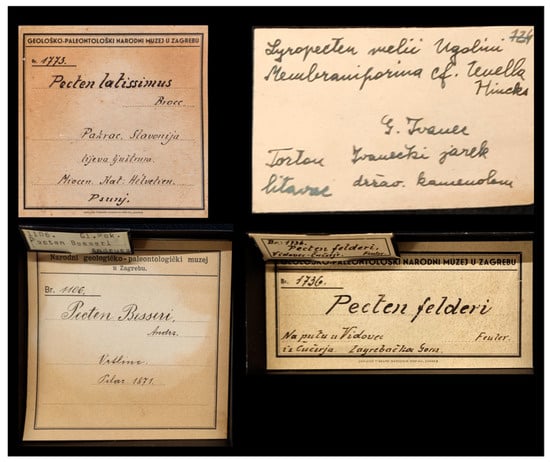 GEOLOŠKO-PALEONTOLOŠKI NARODNI MUZEJ U ZAGREBU
Br. 1773.
Pecten latissimus
Brocc.
Pakrac, Slavonija
lijeva
Miocen. Nat. Helvetien.
Psunj.
724
Lyropecten melii Ugolini
Membraniporina cf. tenella
Hincks
G. Ivanec
Torton Ivanečki jarek
litavac držav. kamenolom
1106.
Pecten Besseri
Narodni geologičko-paleontologički muzej
u Zagrebu.
Br. 1106.
Pecten Besseri,
Andrz.
Vrtline.
Pilar 1871.
Br. 1736.
Pecten felderi,
Vidovec-Čučerje.
GEOLOŠKO-PALEONTOLOŠKI NARODNI MUZEJ U ZAGREBU
Br. 1736.
Pecten felderi
Na putu u Vidovec
iz Čučerja Zagrebačka Gora.